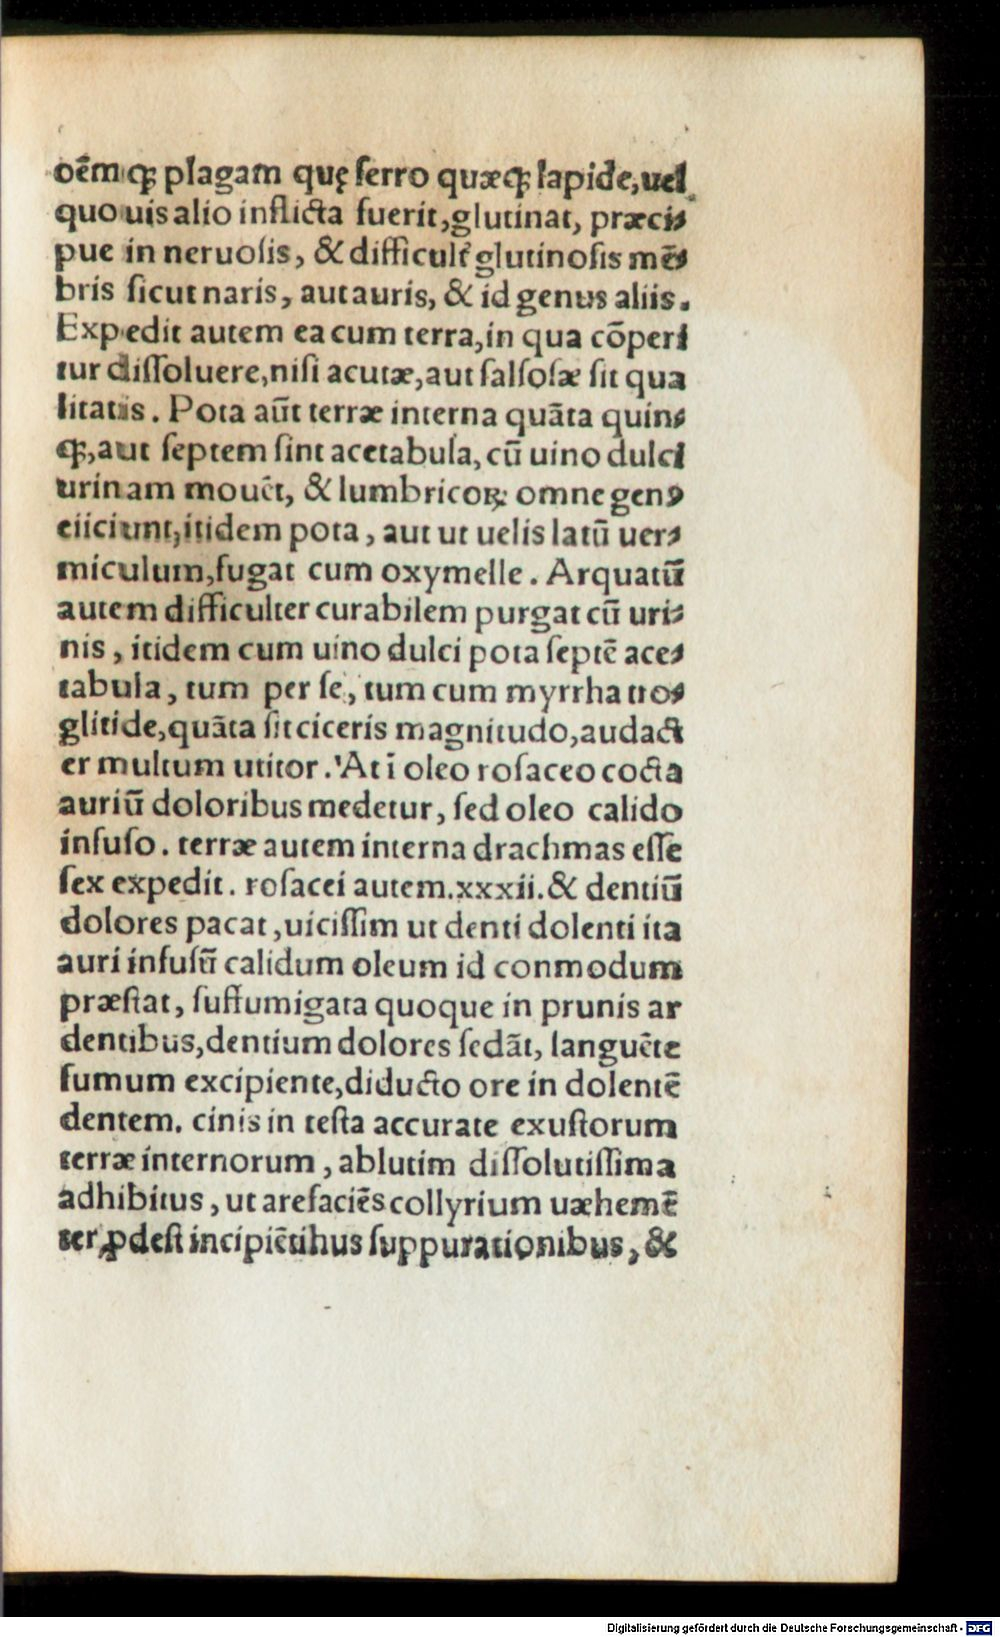 oēmqꝫ plagam quę ferro quæqꝫ lapide, uel
quo uis alio inflicta fuerit, glutinat, præci⸗
pue in neruosis, & difficult̓ glutinosis mē⸗
bris sicut naris, aut auris, & id genus aliis.
Expedit autem ea cum terra, in qua cōperi
tur dissoluere, nisi acutæ, aut salsosæ sit qua
litatis. Pota aūt terræ interna quāta quin⸗
qꝫ, aut septem sint acetabula, cū uino dulci
urinam mouēt, & lumbricoꝝ omne genꝰ
eiiciunt, itidem pota, aut ut uelis latū uer⸗
miculum, fugat cum oxymelle. Arquatū
autem difficulter curabilem purgat cū uri⸗
nis, itidem cum uino dulci pota septē ace⸗
tabula, tum per se, tum cum myrrha tro⸗
glitide, quāta sit ciceris magnitudo, audact
er multum utitor. At ī oleo rosaceo cocta
auriū doloribus medetur, sed oleo calido
infuso. terræ autem interna drachmas esse
sex expedit. rosacei autem.xxxii.& dentiū
dolores pacat, uicissim ut denti dolenti ita
auri infusū calidum oleum id conmodum
præstat, suffumigata quoque in prunis ar
dentibus, dentium dolores sedāt, languēte
fumum excipiente, diducto ore in dolentē
dentem. cinis in testa accurate exustorum
terræ internorum, ablutim dissolutissima
adhibitus, ut arefaciēs collyrium uæhemē
ter ꝓdest incipiētibus suppurationibus, &
Digitalisierung gefördert durch die Deutsche Forschungsgemeinschaft - DFG